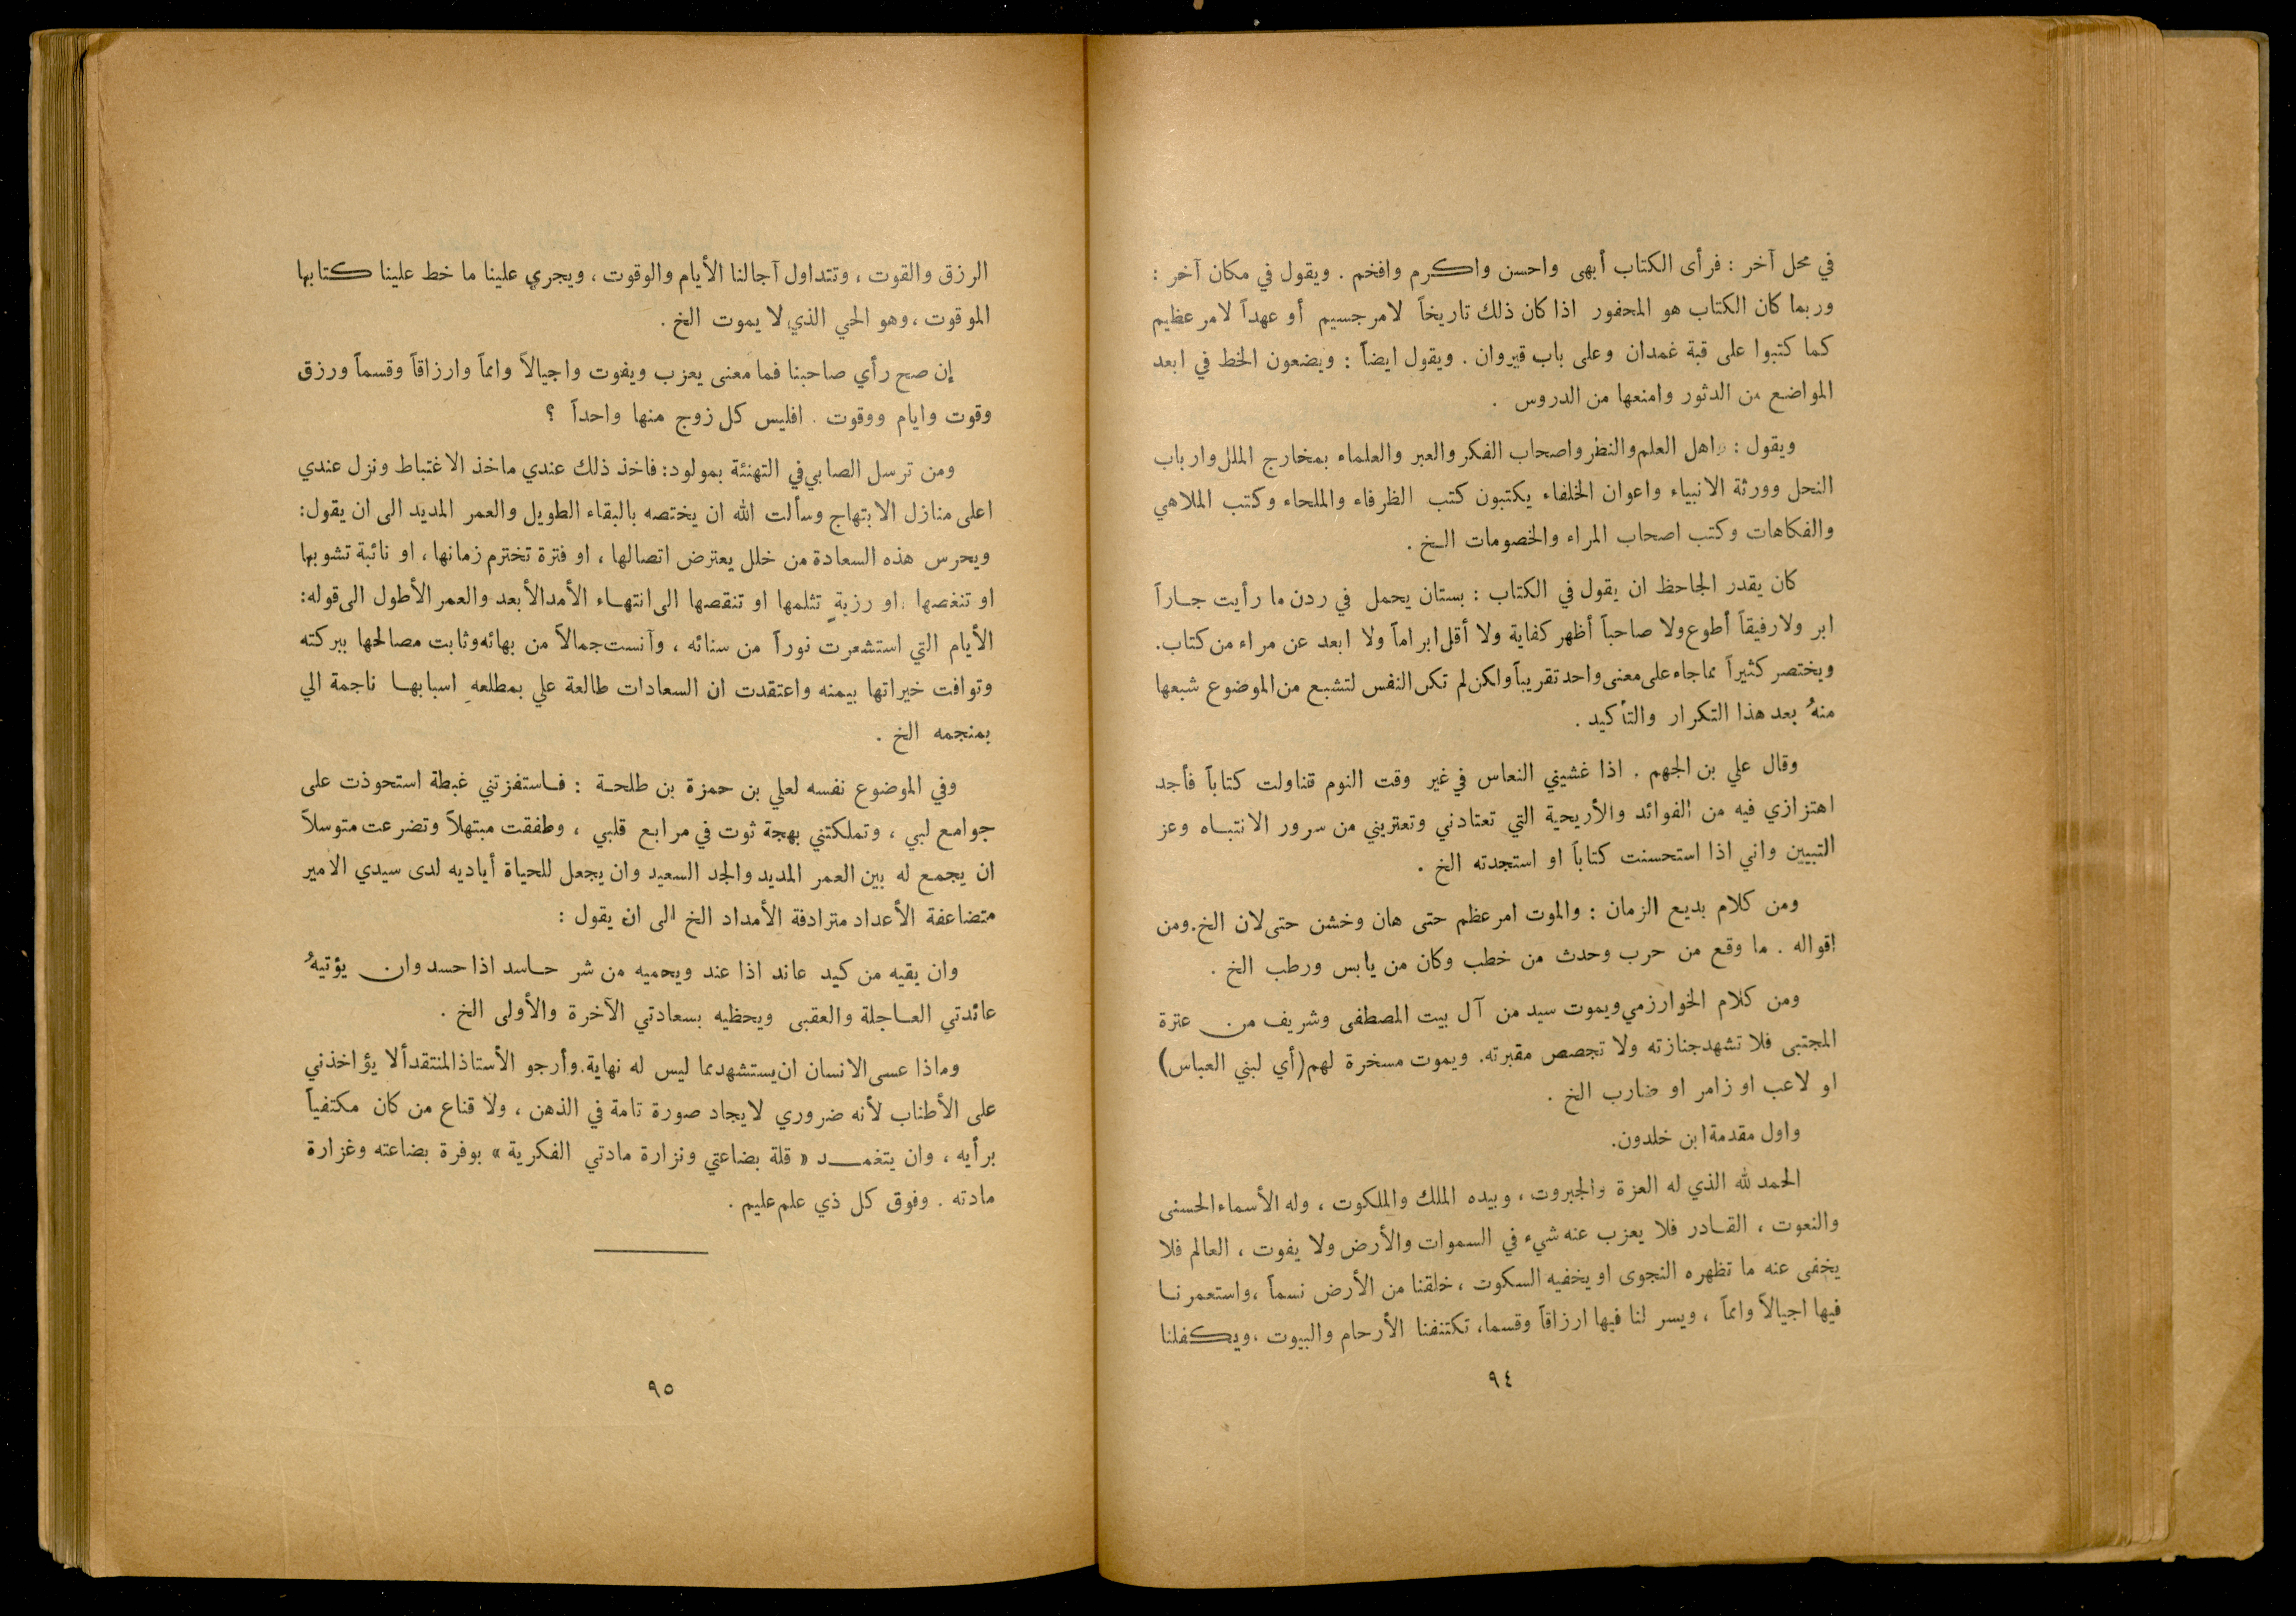 في محل آخر : فرأى الكتاب أبهى واحسن واكرم وافخم . ويقول في مكان آخر :
وربما كان الكتاب هو المحفور اذا كان ذلك تاريخاً لامر جسيم أو عهداً لامر عظيم
كما كتبوا على قبة غمدان وعلى باب قيروان . ويقول ايضاً : ويضعون الخط في ابعد
المواضع من الدثور وامنعها من الدروس .
ويقول : واهل العلم والنظر واصحاب الفكر والعبر والعلماء بمخارج الملل وارباب
النحل وورثة الانبياء واعوان الخلفاء يكتبون كتب الظرفاء والملحاء وكتب الملاهي
والفكاهات وكتب اصحاب المراء والخصومات الخ .
كان يقدر الجاحظ ان يقول في الكتاب : بستان يحمل في ردن ما رأيت جاراً
ابر ولا رفيقاً أطوع ولا صاحباً أظهر كفاية ولا أقل ابراماً ولا ابعد عن مراء من كتاب.
ويختصر كثيراً مما جاء على معنى واحد تقريباً ولكن لم تكن النفس لتشبع من الموضوع شبعها
منهُ بعد هذا التكرار والتأكيد .
وقال علي بن الجهم . اذا غشيني النعاس في غير وقت النوم تناولت كتاباً فأجد
اهتزازي فيه من الفوائد والأريحية التي تعتادني وتعتريني من سرور الانتباه وعز
التبيين واني اذا استحسنت كتاباً او استجدته الخ .
ومن كلام بديع الزمان : والموت امر عظم حتى هان وخشن حتى لان الخ.ومن
اقواله . ما وقع من حرب وحدث من خطب وكان من يابس ورطب الخ .
ومن كلام الخوارزمي ويموت سيد من آل بيت المصطفى وشريف من عترة
المجتبى فلا تشهد جنازته ولا تجصص مقبرته. ويموت مسخرة لهم (أي لبني العباس)
او لاعب او زامر او ضارب الخ .
واول مقدمة ابن خلدون.
الحمد لله الذي له العزة والجبروت ، وبيده الملك والملكوت ، وله الأسماء الحسنى
والنعوت ، القادر فلا يعزب عنه شيء في السموات والأرض ولا يفوت ، العالم فلا
يخفى عنه ما تظهره النجوى او يخفيه السكوت ، خلقنا من الأرض نسماً ، واستعمرنا
فيها اجيالاً وامماً ، ويسر لنا فيها ارزاقاً وقسما، تكتنفنا الأرحام والبيوت ،ويكفلنا
٩٤
الرزق والقوت ، وتتداول آجالنا الأيام والوقوت ، ويجري علينا ما خط علينا كتابها
الموقوت ، وهو الحي الذي لا يموت الخ .
إن صح رأي صاحبنا فما معنى يعزب ويفوت واجيالاً وامماً وارزاقاً وقسماً ورزق
وقوت وايام ووقوت . افليس كل زوج منها واحداً ؟
ومن ترسل الصابي في التهنئة بمولود: فاخذ ذلك عندي ماخذ الاغتباط ونزل عندي
اعلى منازل الابتهاج وسألت الله ان يختصه بالبقاء الطويل والعمر المديد الى ان يقول:
ويحرس هذه السعادة من خلل يعترض اتصالها ، او فترة تخترم زمانها ، او نائبة تشوبها
او تنغصها ، او رزيةٍ تثلمها او تنقصها الى انتهاء الأمد الأبعد والعمر الأطول الى قوله:
الأيام التي استشعرت نوراً من سنائه ، وآنست جمالاً من بهائه وثابت مصالحها ببركته
وتوافت خيراتها بيمنه واعتقدت ان السعادات طالعة علي بمطلعهِ اسبابها ناجمة الي
بمنجمه الخ .
وفي الموضوع نفسه لعلي بن حمزة بن طلحة : فاستفزتني غبطة استحوذت على
جوامع لبي ، وتملكتني بهجة ثوت في مرابع قلبي ، وطفقت مبتهلاً وتضرعت متوسلاً
ان يجمع له بين العمر المديد والجد السعيد وان يجعل للحياة أياديه لدى سيدي الامير
متضاعفة الأعداد مترادفة الأمداد الخ الى ان يقول :
وان يقيه من كيد عاند اذا عند ويحميه من شر حاسد اذا حسد وان يؤتيهُ
عائدتي العاجلة والعقبى ويحظيه بسعادتي الآخرة والأولى الخ .
وماذا عسى الانسان ان يستشهد مما ليس له نهاية. وأرجو الأستاذ المنتقد ألا يؤاخذني
على الأطناب لأنه ضروري لايجاد صورة تامة في الذهن ، ولا قناع من كان مكتفياً
برأيه ، وان يتغمد « قلة بضاعتي ونزارة مادتي الفكرية » بوفرة بضاعته وغزارة
مادته . وفوق كل ذي علم عليم .
٩٥